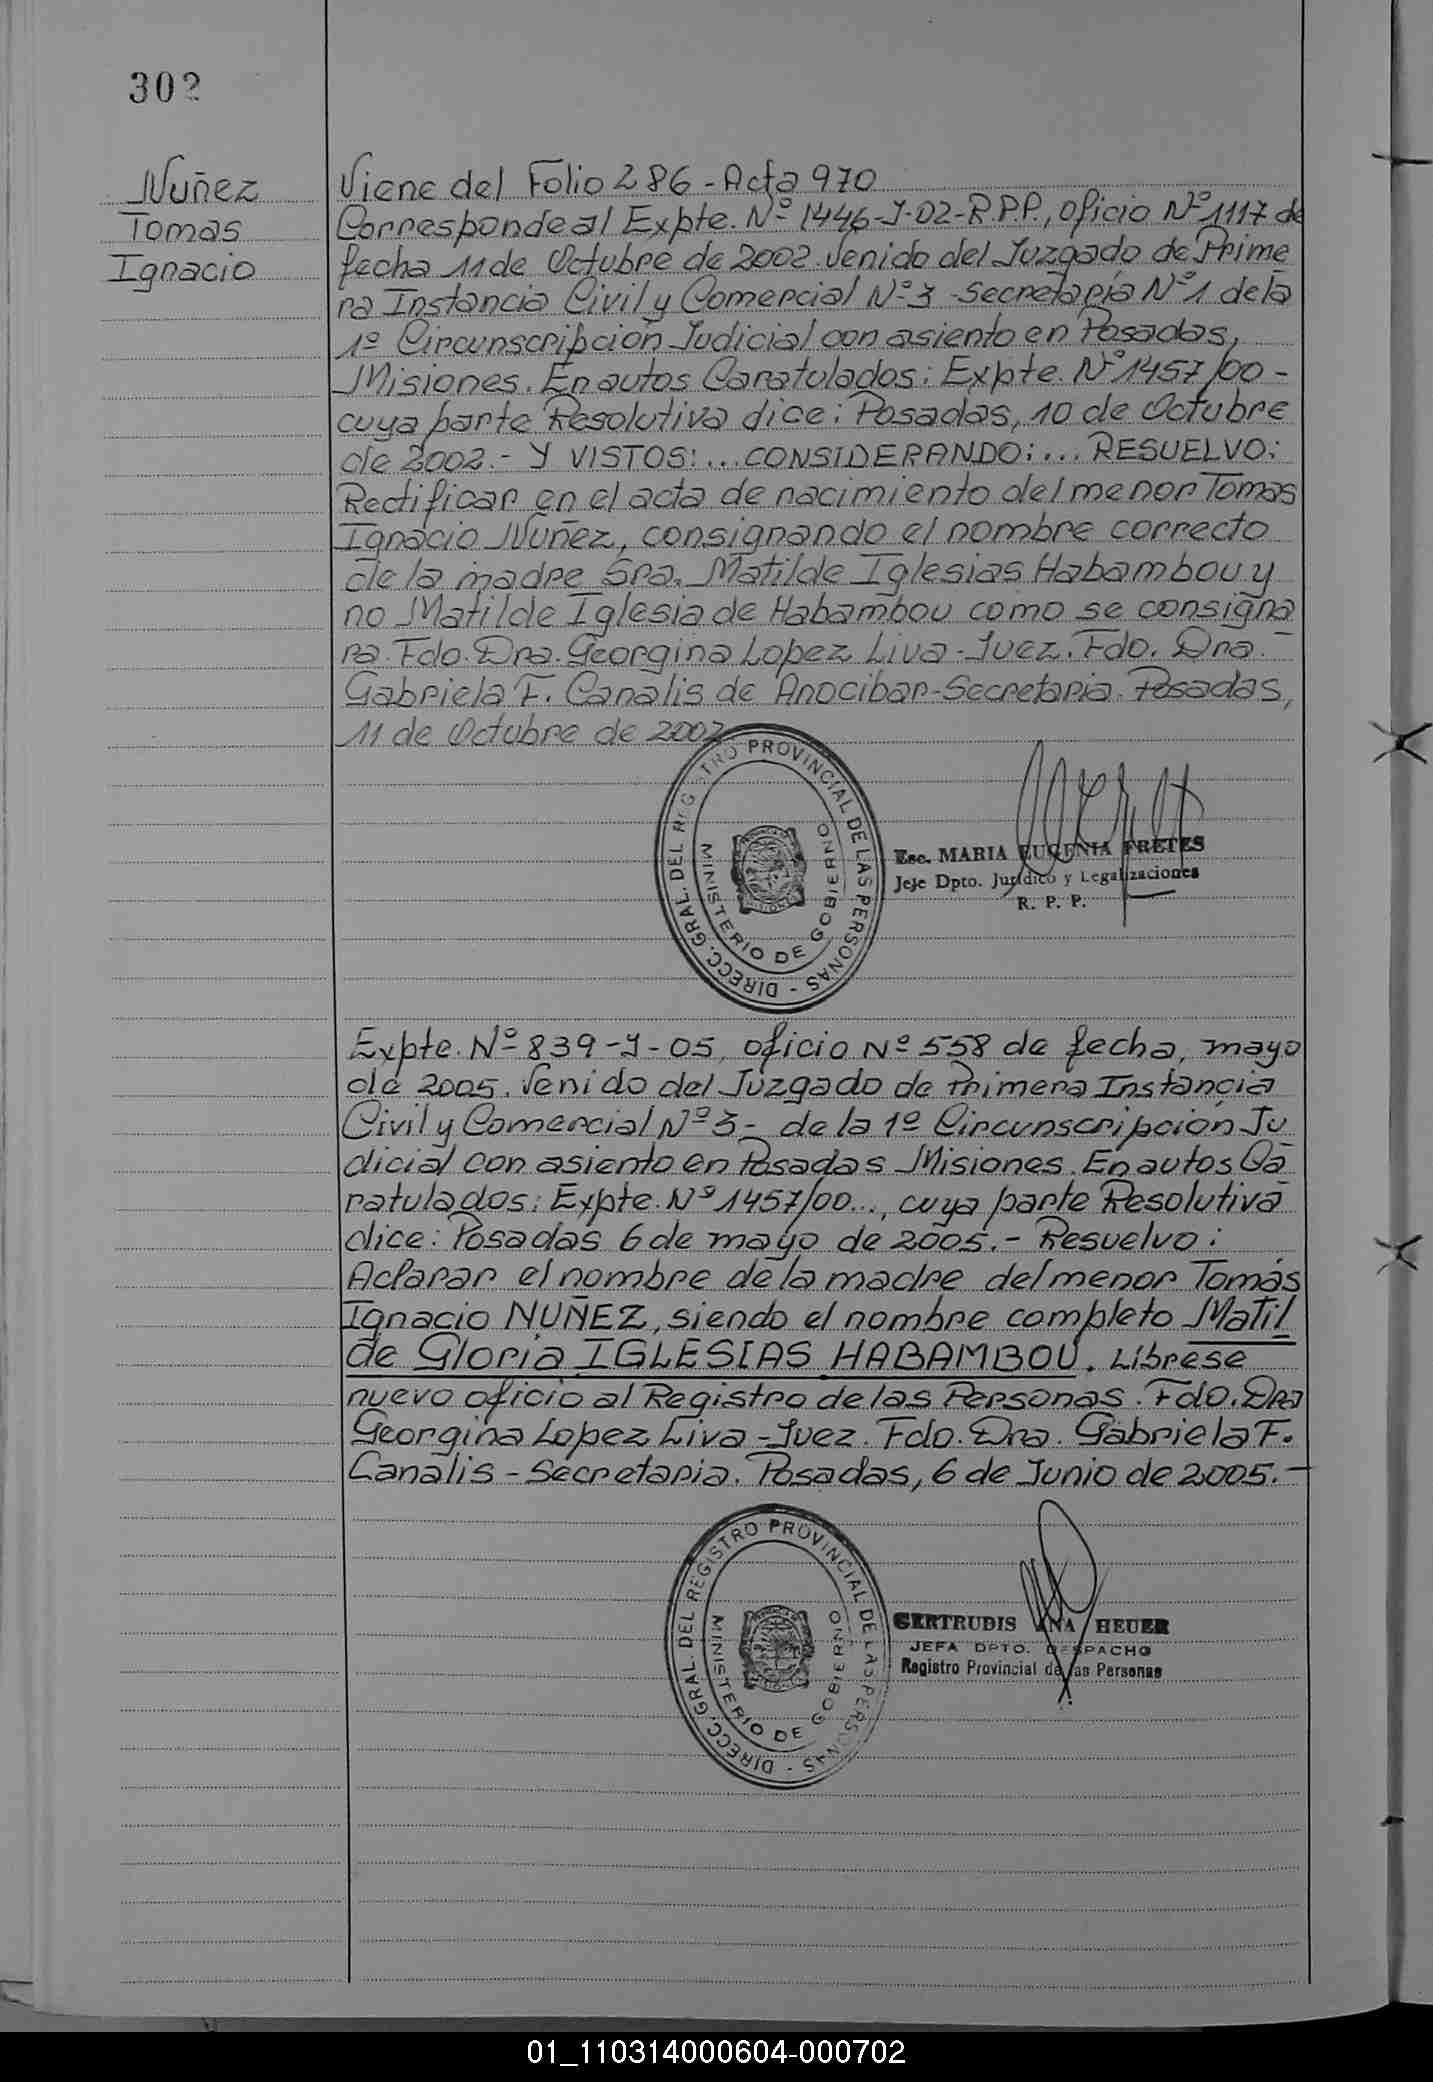 302
Nuñez
Tomas
Ignacio
Viene del Folio 286 - Acta 970
Corresponde al Expte. Nº 1446-J-02-R.P.P., oficio Nº 1117 de
fecha 11 de Octubre de 2002. Venido del Juzgado de Prime
ra Instancia Civil y Comercial Nº 3 - Secretaria Nº 1 de la
1º Circunscripción Judicial con asiento en Posadas,
Misiones. En autos Caratulados: Expte. Nº 1457/00 -
cuya parte Resolutiva dice: Posadas, 10 de Octubre
de 2002.- Y VISTOS:... CONSIDERANDO:... RESUELVO:
Rectificar en el acta de nacimiento del menor Tomas
Ignacio Nuñez, consignando el nombre correcto
de la madre Sra. Matilde Iglesias Habambou y
no Matilde Iglesia de Habambou como se consigna
ra. Fdo. Dra. Georgina Lopez Liva - Juez. Fdo. Dra.-
Gabriela F. Canalis de Anocibar - Secretaria. Posadas,
11 de Octubre de 2002
DIRECC. GRAL. DEL REGISTRO PROVINCIAL DE LAS PERSONAS -
MINISTERIO DE GOBIERNO
Esc. MARIA EUGENIA FRETES
Jefe Dpto. Jurídico y Legalizaciones
R. P. P.
Expte. Nº 839-J-05, oficio Nº 558 de fecha, mayo
de 2005. Venido del Juzgado de Primera Instancia
Civil y Comercial Nº 3 - de la 1º Circunscripción Ju
dicial con asiento en Posadas Misiones. En autos Ca
ratulados: Expte. Nº 1457/00..., cuya parte Resolutiva
dice: Posadas 6 de mayo de 2005.- Resuelvo:
Aclarar el nombre de la madre del menor Tomás
Ignacio NUÑEZ, siendo el nombre completo Matil
de Gloria IGLESIAS HABAMBOU. Librese
nuevo oficio al Registro de las Personas. Fdo. Dra
Georgina Lopez Liva - Juez. Fdo. Dra. Gabriela F.
Canalis - Secretaria. Posadas, 6 de Junio de 2005.-
DIRECC. GRAL. DEL REGISTRO PROVINCIAL DE LAS PERSONAS -
MINISTERIO DE GOBIERNO
GERTRUDIS ANA HEUER
JEFA DPTO. DESPACHO
Registro Provincial de las Personas
01_110314000604-000702